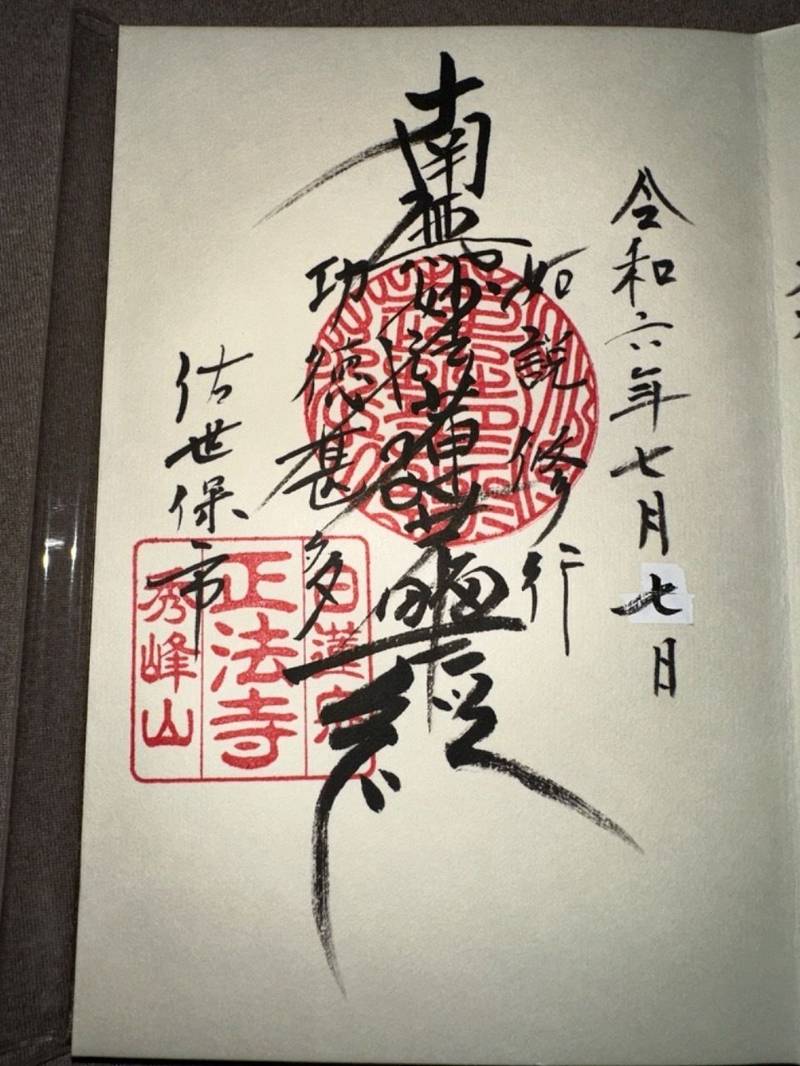 令和六年七月七日
如説修行
南無妙法蓮華經
功徳甚多
佐世保市
日蓮宗
正法寺
秀峰山